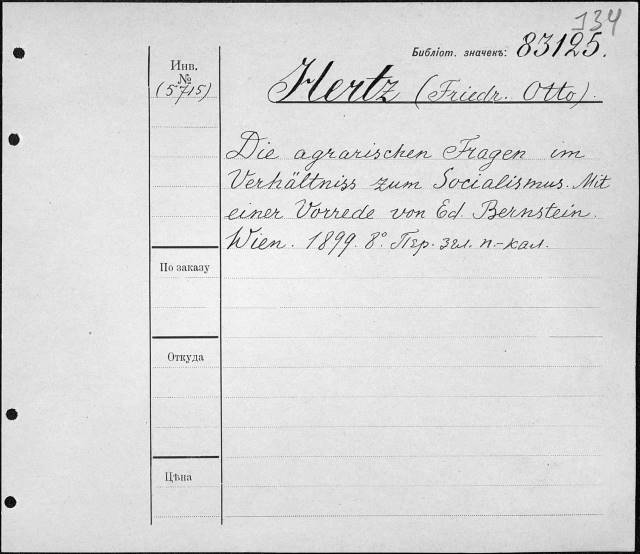 134
Библіот. значекъ: 83125.
Инв.
№
(5715)
Hertz (Friedr. Otto).
Die agrarischen Fragen im
Verhältniss zum Socialismus. Mit
einer Vorrede von Ed. Bernstein.
Wien. 1899. 8º. Пер. згл. п.-кал.
По заказу
Откуда
Цѣна